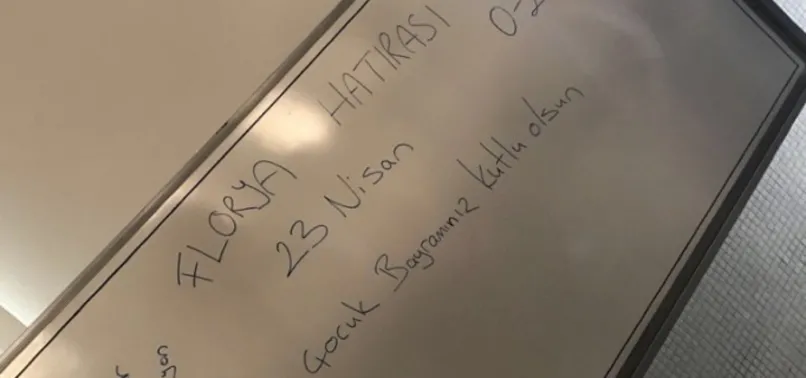 FLORYA HATIRASI
23 Nisan
Çocuk Bayramınız Kutlu olsun